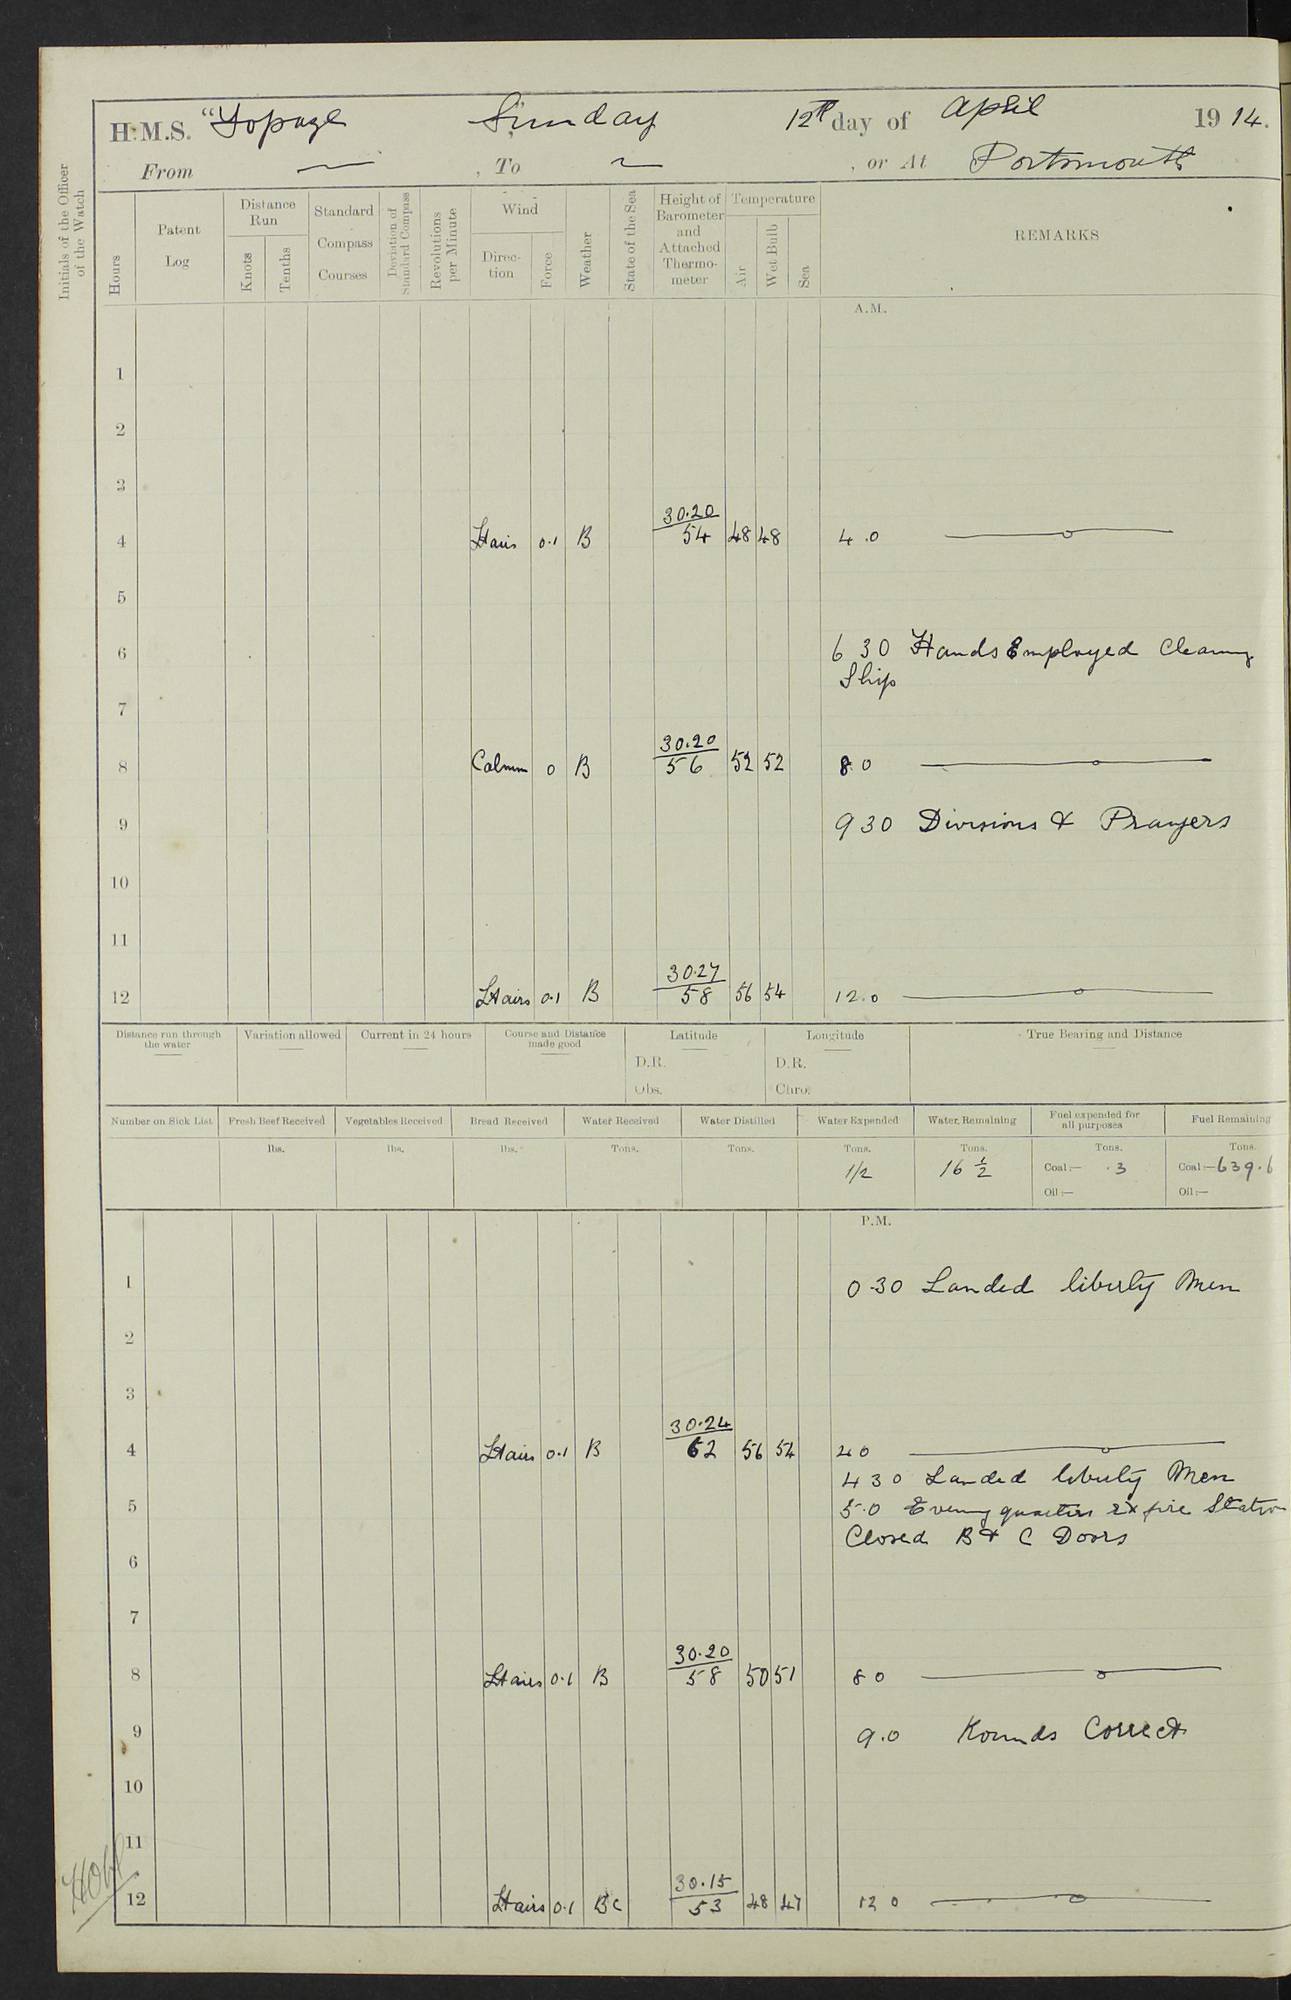 H.M.S. "Topaze Sunday 12th day of April 1914.
From — , To ~ , or At Portsmouth
Initials of the Officer of the Watch
Hours
Patent Log
Distance Run
Knots
Tenths
Standard Compass Courses
Deviation of Standard Compass
Revolutions per Minute
Wind
Direction
Force
Weather
State of the Sea
Height of Barometer and Attached Thermometer
Temperature
Air
Wet Bulb
Sea
REMARKS
A.M.
1
2
3
30.20
4 Lt airs 0.1 B 54 48 48 4.0
5
6 6 30 Hands Employed Cleaning
Ship
7
30.20
8 Calm 0 B 56 52 52 8.0
9 9 30 Divisions & Prayers
10
11
30.27
12 Lt airs 0.1 B 58 56 54 12.0
Distance run through the water Variation allowed Current in 24 hours Course and Distance made good Latitude Longitude True Bearing and Distance
D.R. D.R.
Obs. Chro:
Number on Sick List Fresh Beef Received Vegetables Received Bread Received Water Received Water Distilled Water Expended Water Remaining Fuel expended for all purposes Fuel Remaining
lbs. lbs. lbs. Tons. Tons. Tons. Tons. Tons. Tons.
1/2 16 1/2 Coal:— .3 Coal:—639.6
Oil:— Oil:—
P.M.
1 0.30 Landed liberty Men
2
3
30.24
4 Lt airs 0.1 B 62 56 54 4 0
4 30 Landed liberty Men
5 5.0 Evening quarters Ex fire Station
Closed B & C Doors
6
7
30.20
8 Lt airs 0.1 B 58 50 51 8 0
9 9.0 Rounds Correct
10
11
30.15
12 Lt airs 0.1 Bc 53 48 47 12 0